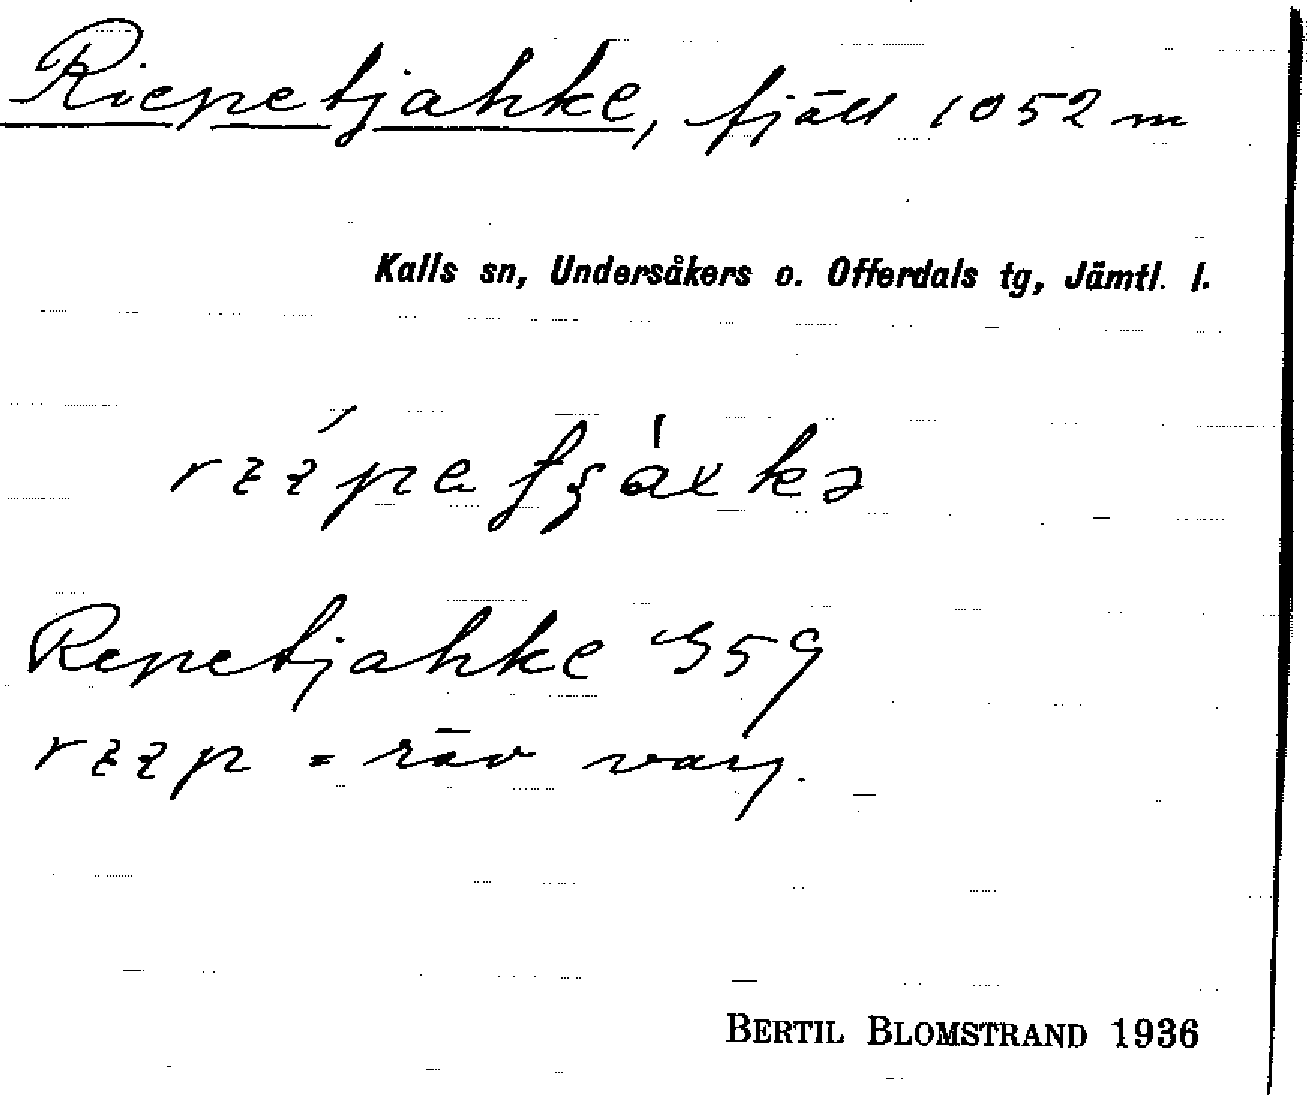 Riepetjahke, fjäll 1052 m
Kalls sn, Undersåkers o. Offerdals tg, Jämtl. l.
Repetjahke G59
= räv varg.
BERTIL BLOMSTRAND 1936